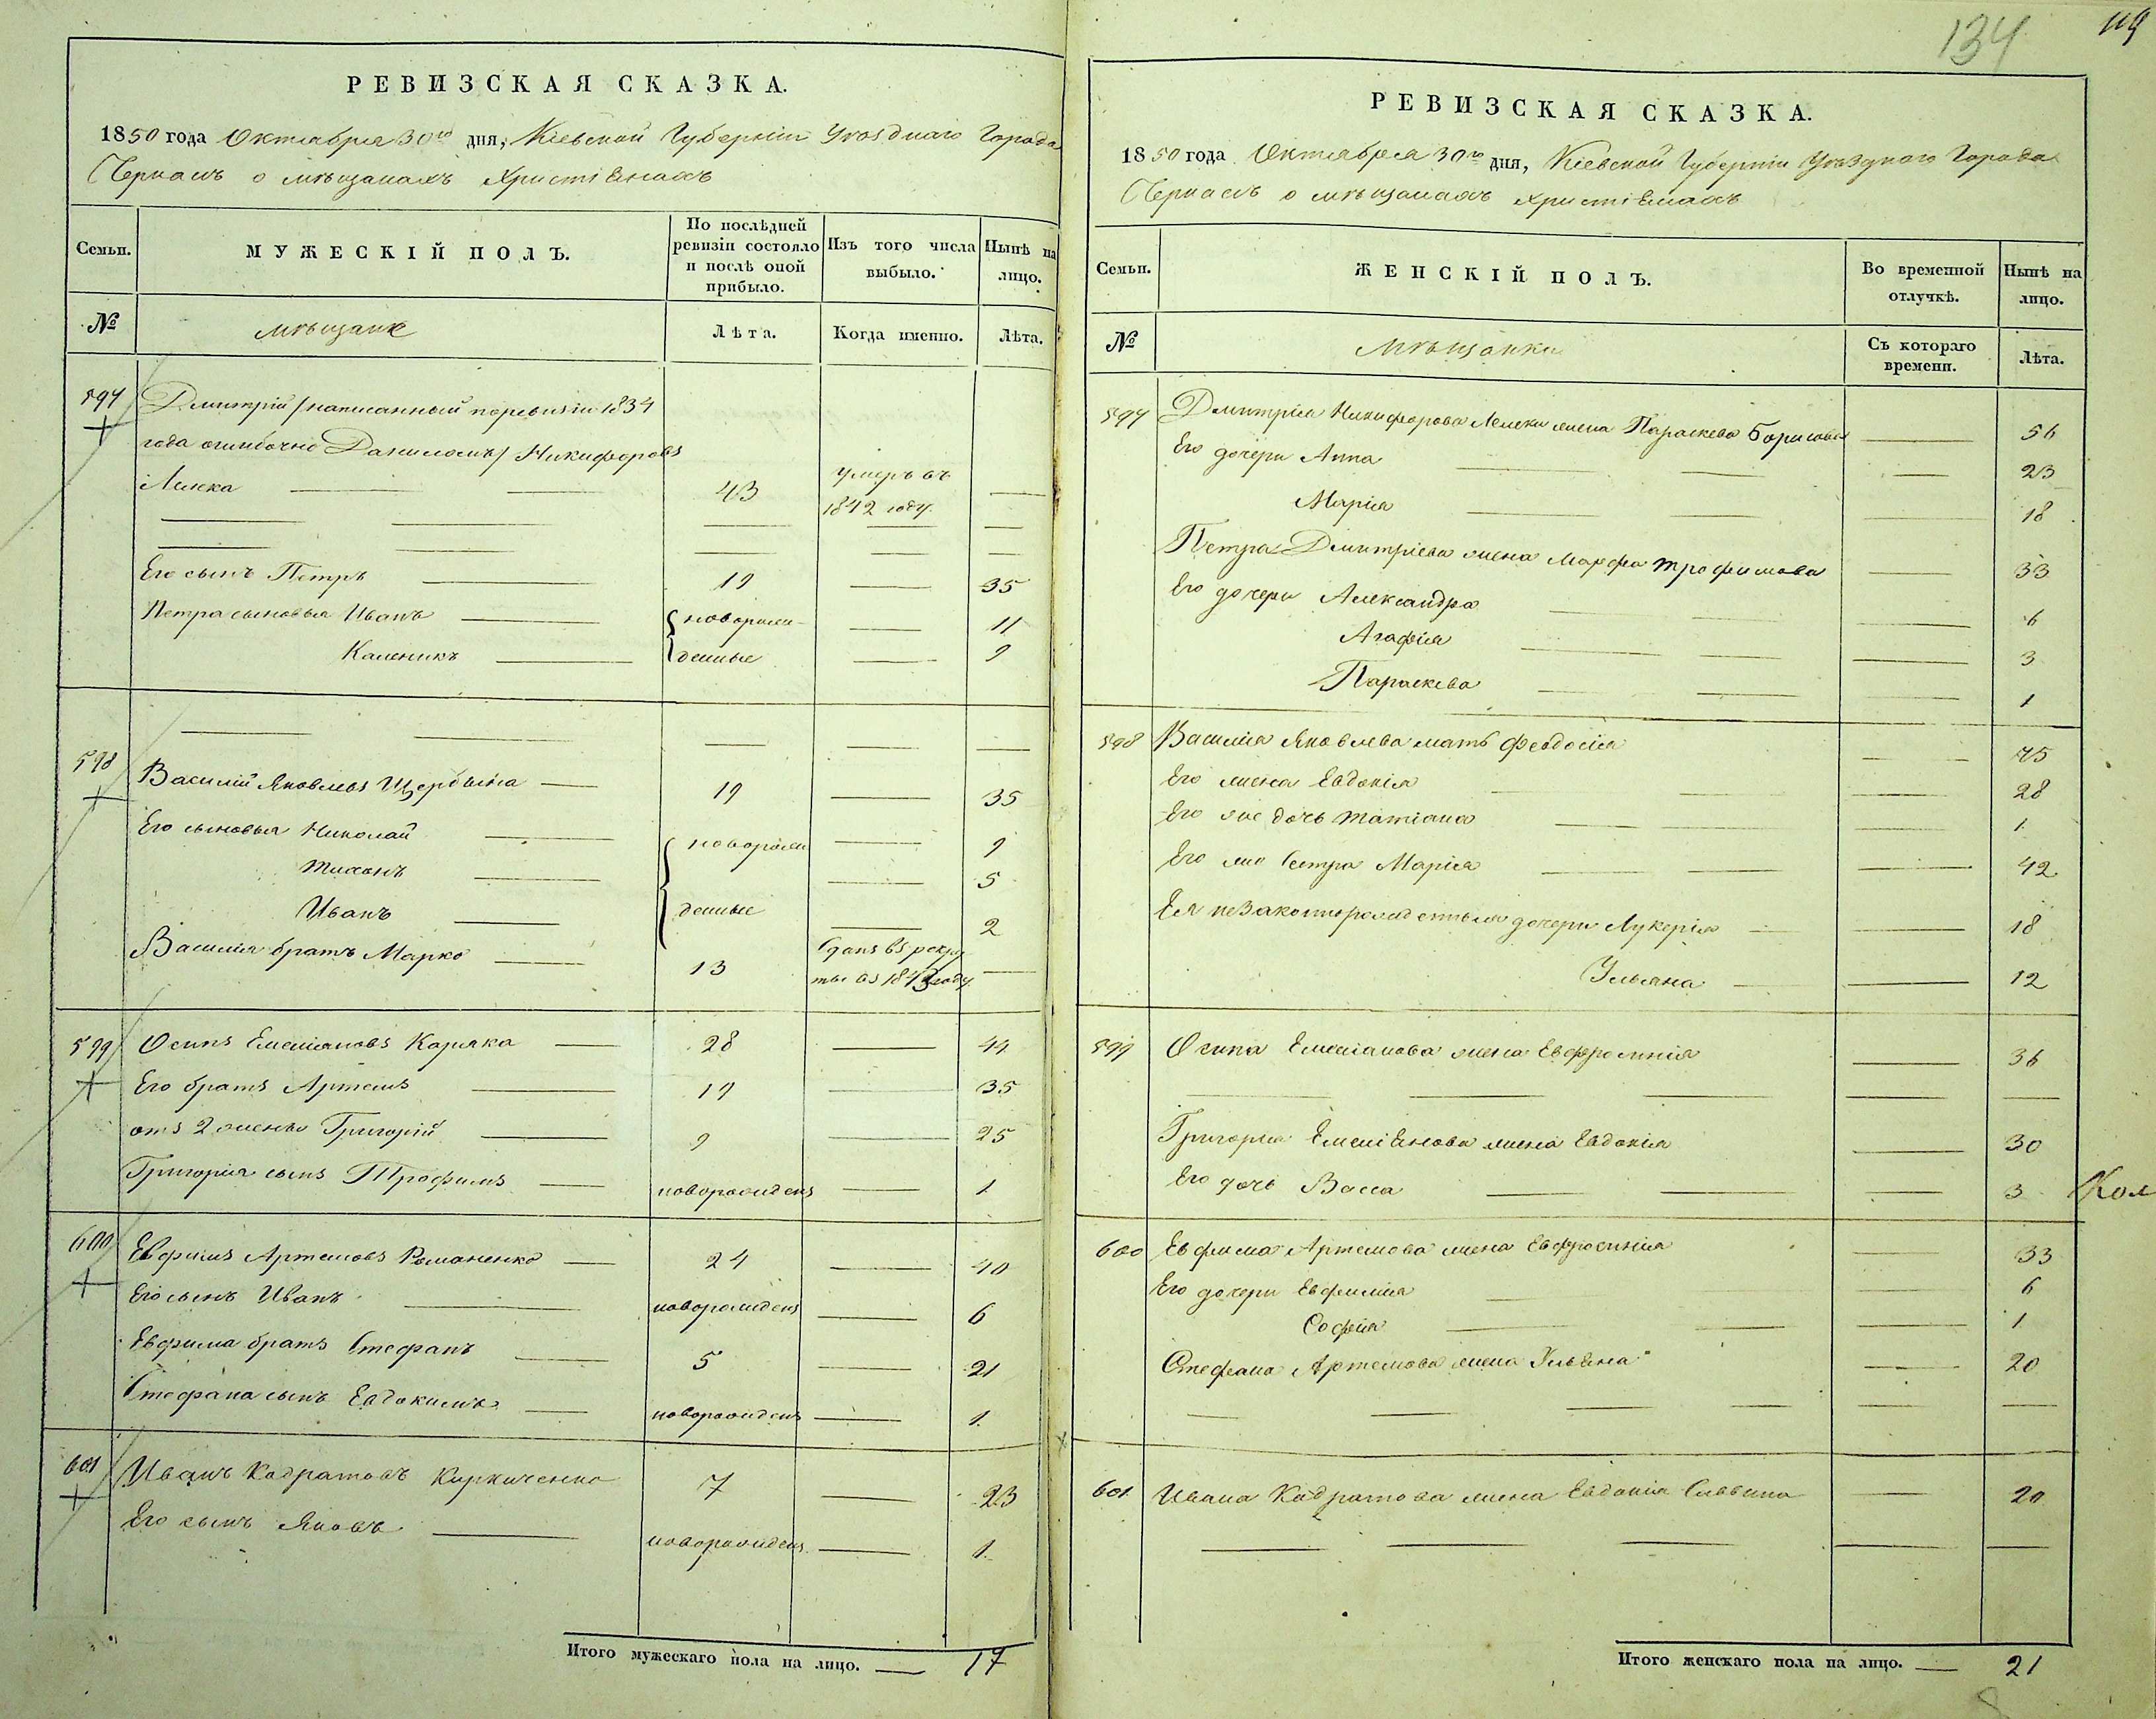 134
119
РЕВИЗСКАЯ СКАЗКА.
1850 года Октября 30го дня, Кіевской Губерніи Уѣзднаго Города
Черкасъ о мѣщанахъ Христіянахъ
Семьи.
МУЖЕСКІЙ ПОЛЪ.
По послѣдней ревизіи состояло и послѣ оной прибыло.
Изъ того числа выбыло.
Нынѣ на лицо.
№
мѣщане
Лѣта.
Когда именно.
Лѣта.
597 Дмитрій /написанный по ревизіи 1834
года ошибочно Даниломъ/ Никифоровъ
43 умеръ въ 1842 году.
Его сынъ Петръ 19 35
Петра сыновья Иванъ новорож- 11
Каленикъ денные 9
598 Василій Яковлевъ Щербина 19 35
Его сыновья Николай новорож 9
Тихонъ 5
Иванъ денные 2
Василія братъ Марко 13 Сданъ въ рекру
ты въ 1843 году
599 Осипъ Емельяновъ Коряка 28 44
Его братъ Артемъ 19 35
отъ 2 жены Григорій 9 25
Григорія сынъ Трофимъ новорожденъ 1
600 Евфимъ Артемовъ Романенко 24 40
Его сынъ Иванъ новорожденъ 6
Евфима братъ Стефанъ 5 21
Стефана сынъ Евдокимъ новорожденъ 1.
601 Иванъ Кадратовъ Кириченко 7 23
Его сынъ Яковъ новорожденъ 1.
Итого мужескаго пола на лицо. 17
РЕВИЗСКАЯ СКАЗКА.
1850 года Октября 30го дня, Кіевской Губерніи Уѣзднаго Города
Черкасъ о мѣщанахъ христіянахъ
Семьи.
ЖЕНСКІЙ ПОЛЪ.
Во временной отлучкѣ.
Нынѣ на лицо.
№
Мѣщанки
Съ котораго времени.
Лѣта.
597 Дмитрія Никифорова жена Параскева Борисова 56
Его дочери Анна 23
Марія 18
Петра Дмитріева жена Марфа Трофимова 33
Его дочери Александра 6
Агафія 3
Параскева 1
598 Василія Яковлева мать Феодосія 75
Его жена Евдокія 28
Его же дочь Татіана 1
Его же Сестра Марія 42
Ея незаконнорожденныя дочери Лукерія 18
Ульяна 12
599 Осипа Емельянова жена Евфросинія 36
Григорія Емеліянова жена Евдокія 30
Его дочь Васса 3
Кол
600 Евфима Артемова жена Евфросинія 33
Его дочери Евфимія 6
Софія 1
Стефана Артемова жена Ульяна 20
601 Ивана Кадратова жена Евдокія Саввина 20
Итого женскаго пола на лицо. 21